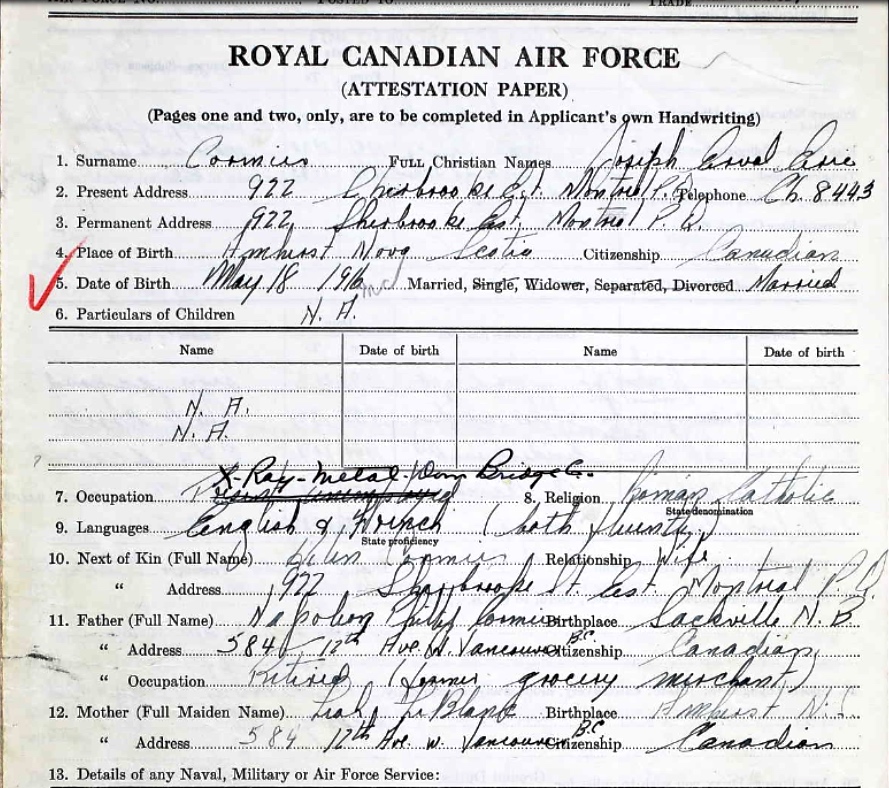 ROYAL CANADIAN AIR FORCE
(ATTESTATION PAPER)
(Pages one and two, only, are to be completed in Applicant's own Handwriting)
1. Surname Cormier Full Christian Names Joseph
2. Present Address 922 Sherbrooke E St. Montreal P.Q. Telephone Ch. 8443
3. Permanent Address 922 Sherbrooke East, Montreal P.Q.
4. Place of Birth Amherst Nova Scotia Citizenship Canadian
5. Date of Birth May 18 Married, Single, Widower, Separated, Divorced Married
6. Particulars of Children N. A.
Name Date of birth Name Date of birth
N. A.
N. A.
X-Ray-Metal-Dom Bridge Co.
7. Occupation 8. Religion Roman Catholic
State denomination
9. Languages English & French (both fluently)
State proficiency
10. Next of Kin (Full Name) Cormier Relationship Wife
" Address 922 Sherbrooke St. East Montreal P.Q.
11. Father (Full Name) Napoleon Cormier Birthplace Sackville N.B
" Address 584 12th Ave. W. Vancouver B.C. Citizenship Canadian
" Occupation Retired (former grocery merchant)
12. Mother (Full Maiden Name) LeBlanc Birthplace Amherst N.S.
" Address 584 12th Ave. W. Vancouver B.C Citizenship Canadian
13. Details of any Naval, Military or Air Force Service: